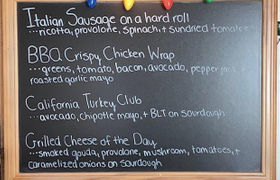 Italian Sausage on a hard roll
...ricotta, provolone, spinach, + sundried tomatoes
BBQ Crispy Chicken Wrap
...greens, tomato, bacon, avocado, pepper jack,
roasted garlic mayo
California Turkey Club
...avocado, chipotle mayo, + BLT on sourdough
Grilled Cheese of the Day
...smoked gouda, provolone, mushroom, tomatoes, +
caramelized onions on sourdough